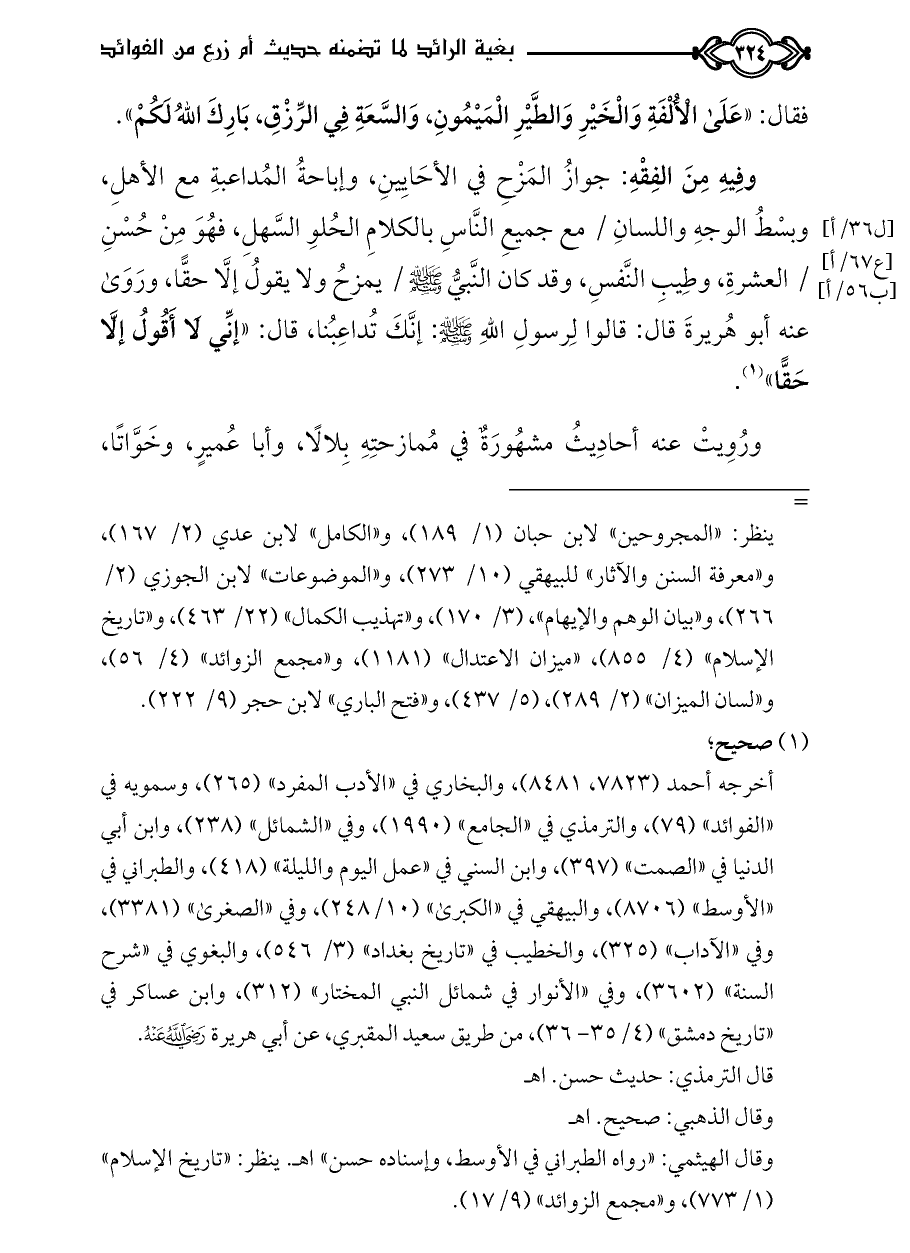 ٣٢٤ بغية الرائد لما تضمنه حديث أم زرع من الفوائد
فقال: «عَلَىٰ الْأُلْفَةِ وَالْخَيْرِ وَالطَّيْرِ الْمَيْمُونِ، وَالسَّعَةِ فِي الرِّزْقِ، بَارِكَ اللهُ لَكُمْ».
وفِيهِ مِنَ الفِقْهِ: جوازُ المَزْحِ في الأحَايِينِ، وإباحةُ المُداعبةِ مع الأهلِ،
[ل٣٦/ أ] وبسْطُ الوجهِ واللسانِ / مع جميعِ النَّاسِ بالكلامِ الحُلوِ السَّهلِ، فهُوَ مِنْ حُسْنِ
[ع٦٧/ أ]
[ب٥٦/ أ] / العشرةِ، وطِيبِ النَّفسِ، وقد كان النَّبيُّ ﷺ / يمزحُ ولا يقولُ إلَّا حقًّا، ورَوَىٰ
عنه أبو هُريرةَ قال: قالوا لِرسولِ اللهِ ﷺ: إنَّكَ تُداعِبُنا، قال: «إنِّي لَا أَقُولُ إلَّا
حَقًّا»(١).
ورُوِيتْ عنه أحاديثُ مشهُورَةٌ في مُمازحتِهِ بِلالًا، وأبا عُميرٍ، وخَوَّاتًا،
=
ينظر: «المجروحين» لابن حبان (١/ ١٨٩)، و«الكامل» لابن عدي (٢/ ١٦٧)،
و«معرفة السنن والآثار» للبيهقي (١٠/ ٢٧٣)، و«الموضوعات» لابن الجوزي (٢/
٢٦٦)، و«بيان الوهم والإيهام»، (٣/ ١٧٠)، و«تهذيب الكمال» (٢٢/ ٤٦٣)، و«تاريخ
الإسلام» (٤/ ٨٥٥)، «ميزان الاعتدال» (١١٨١)، و«مجمع الزوائد» (٤/ ٥٦)،
و«لسان الميزان» (٢/ ٢٨٩)، (٥/ ٤٣٧)، و«فتح الباري» لابن حجر (٩/ ٢٢٢).
(١) صحيح؛
أخرجه أحمد (٧٨٢٣، ٨٤٨١)، والبخاري في «الأدب المفرد» (٢٦٥)، وسمويه في
«الفوائد» (٧٩)، والترمذي في «الجامع» (١٩٩٠)، وفي «الشمائل» (٢٣٨)، وابن أبي
الدنيا في «الصمت» (٣٩٧)، وابن السني في «عمل اليوم والليلة» (٤١٨)، والطبراني في
«الأوسط» (٨٧٠٦)، والبيهقي في «الكبرىٰ» (١٠/ ٢٤٨)، وفي «الصغرىٰ» (٣٣٨١)،
وفي «الآداب» (٣٢٥)، والخطيب في «تاريخ بغداد» (٣/ ٥٤٦)، والبغوي في «شرح
السنة» (٣٦٠٢)، وفي «الأنوار في شمائل النبي المختار» (٣١٢)، وابن عساكر في
«تاريخ دمشق» (٤/ ٣٥- ٣٦)، من طريق سعيد المقبري، عن أبي هريرة رَضِيَ اللَّهُ عَنْهُ.
قال الترمذي: حديث حسن. اهـ
وقال الذهبي: صحيح. اهـ
وقال الهيثمي: «رواه الطبراني في الأوسط، وإسناده حسن» اهـ. ينظر: «تاريخ الإسلام»
(١/ ٧٧٣)، و«مجمع الزوائد» (٩/ ١٧).